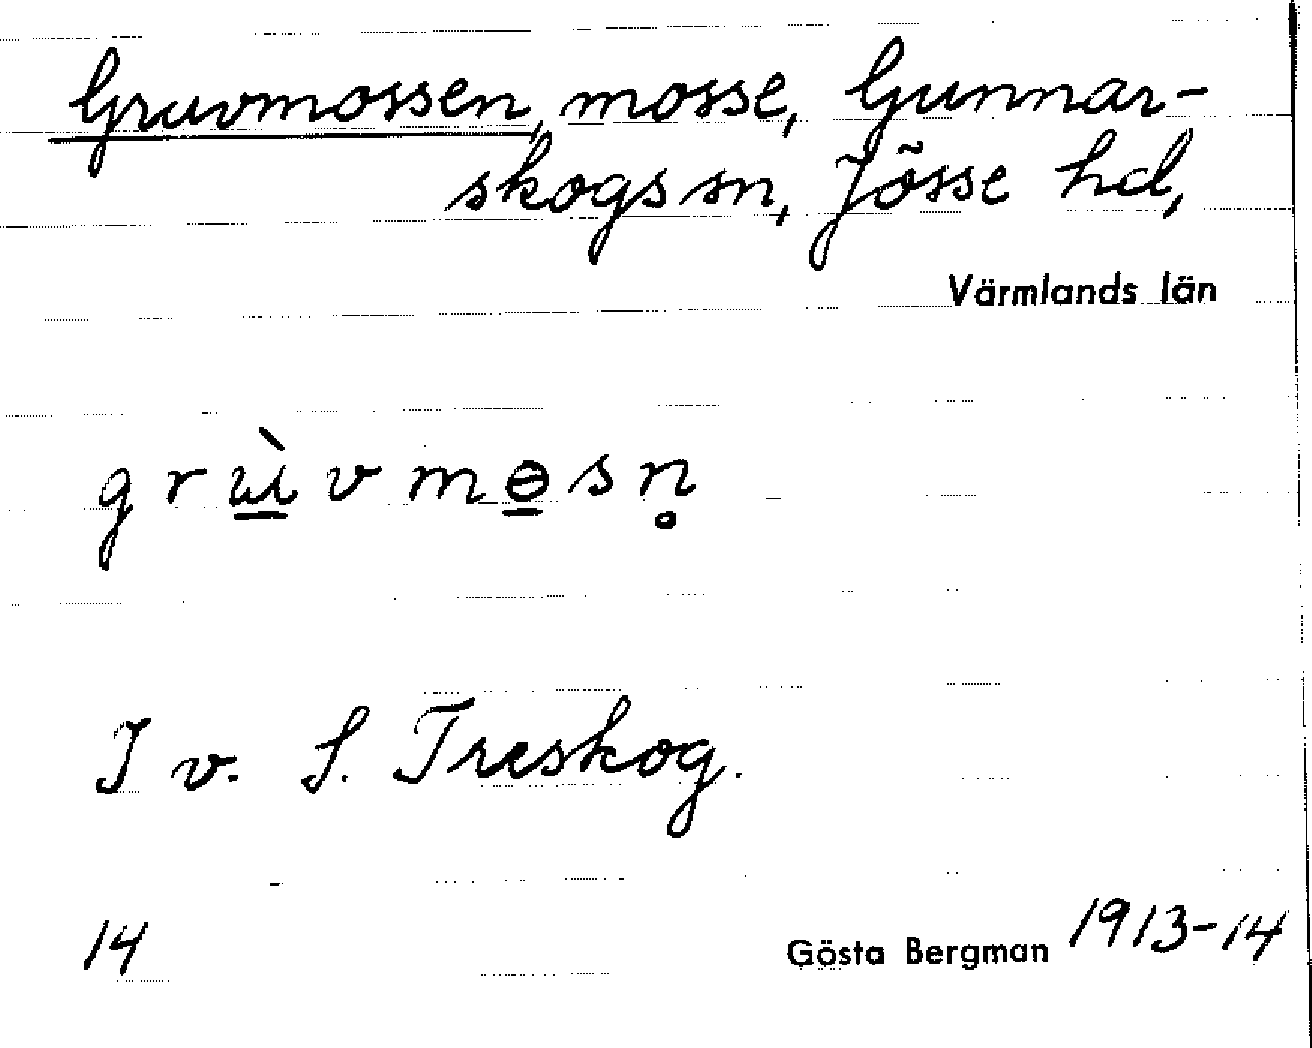 Gruvmossen, mosse, Gunnar-
skogs sn, Jösse hd,
Värmlands län
grù̲vmɵ̲sn̥
I v. S. Treskog.
14
Gösta Bergman 1913-14